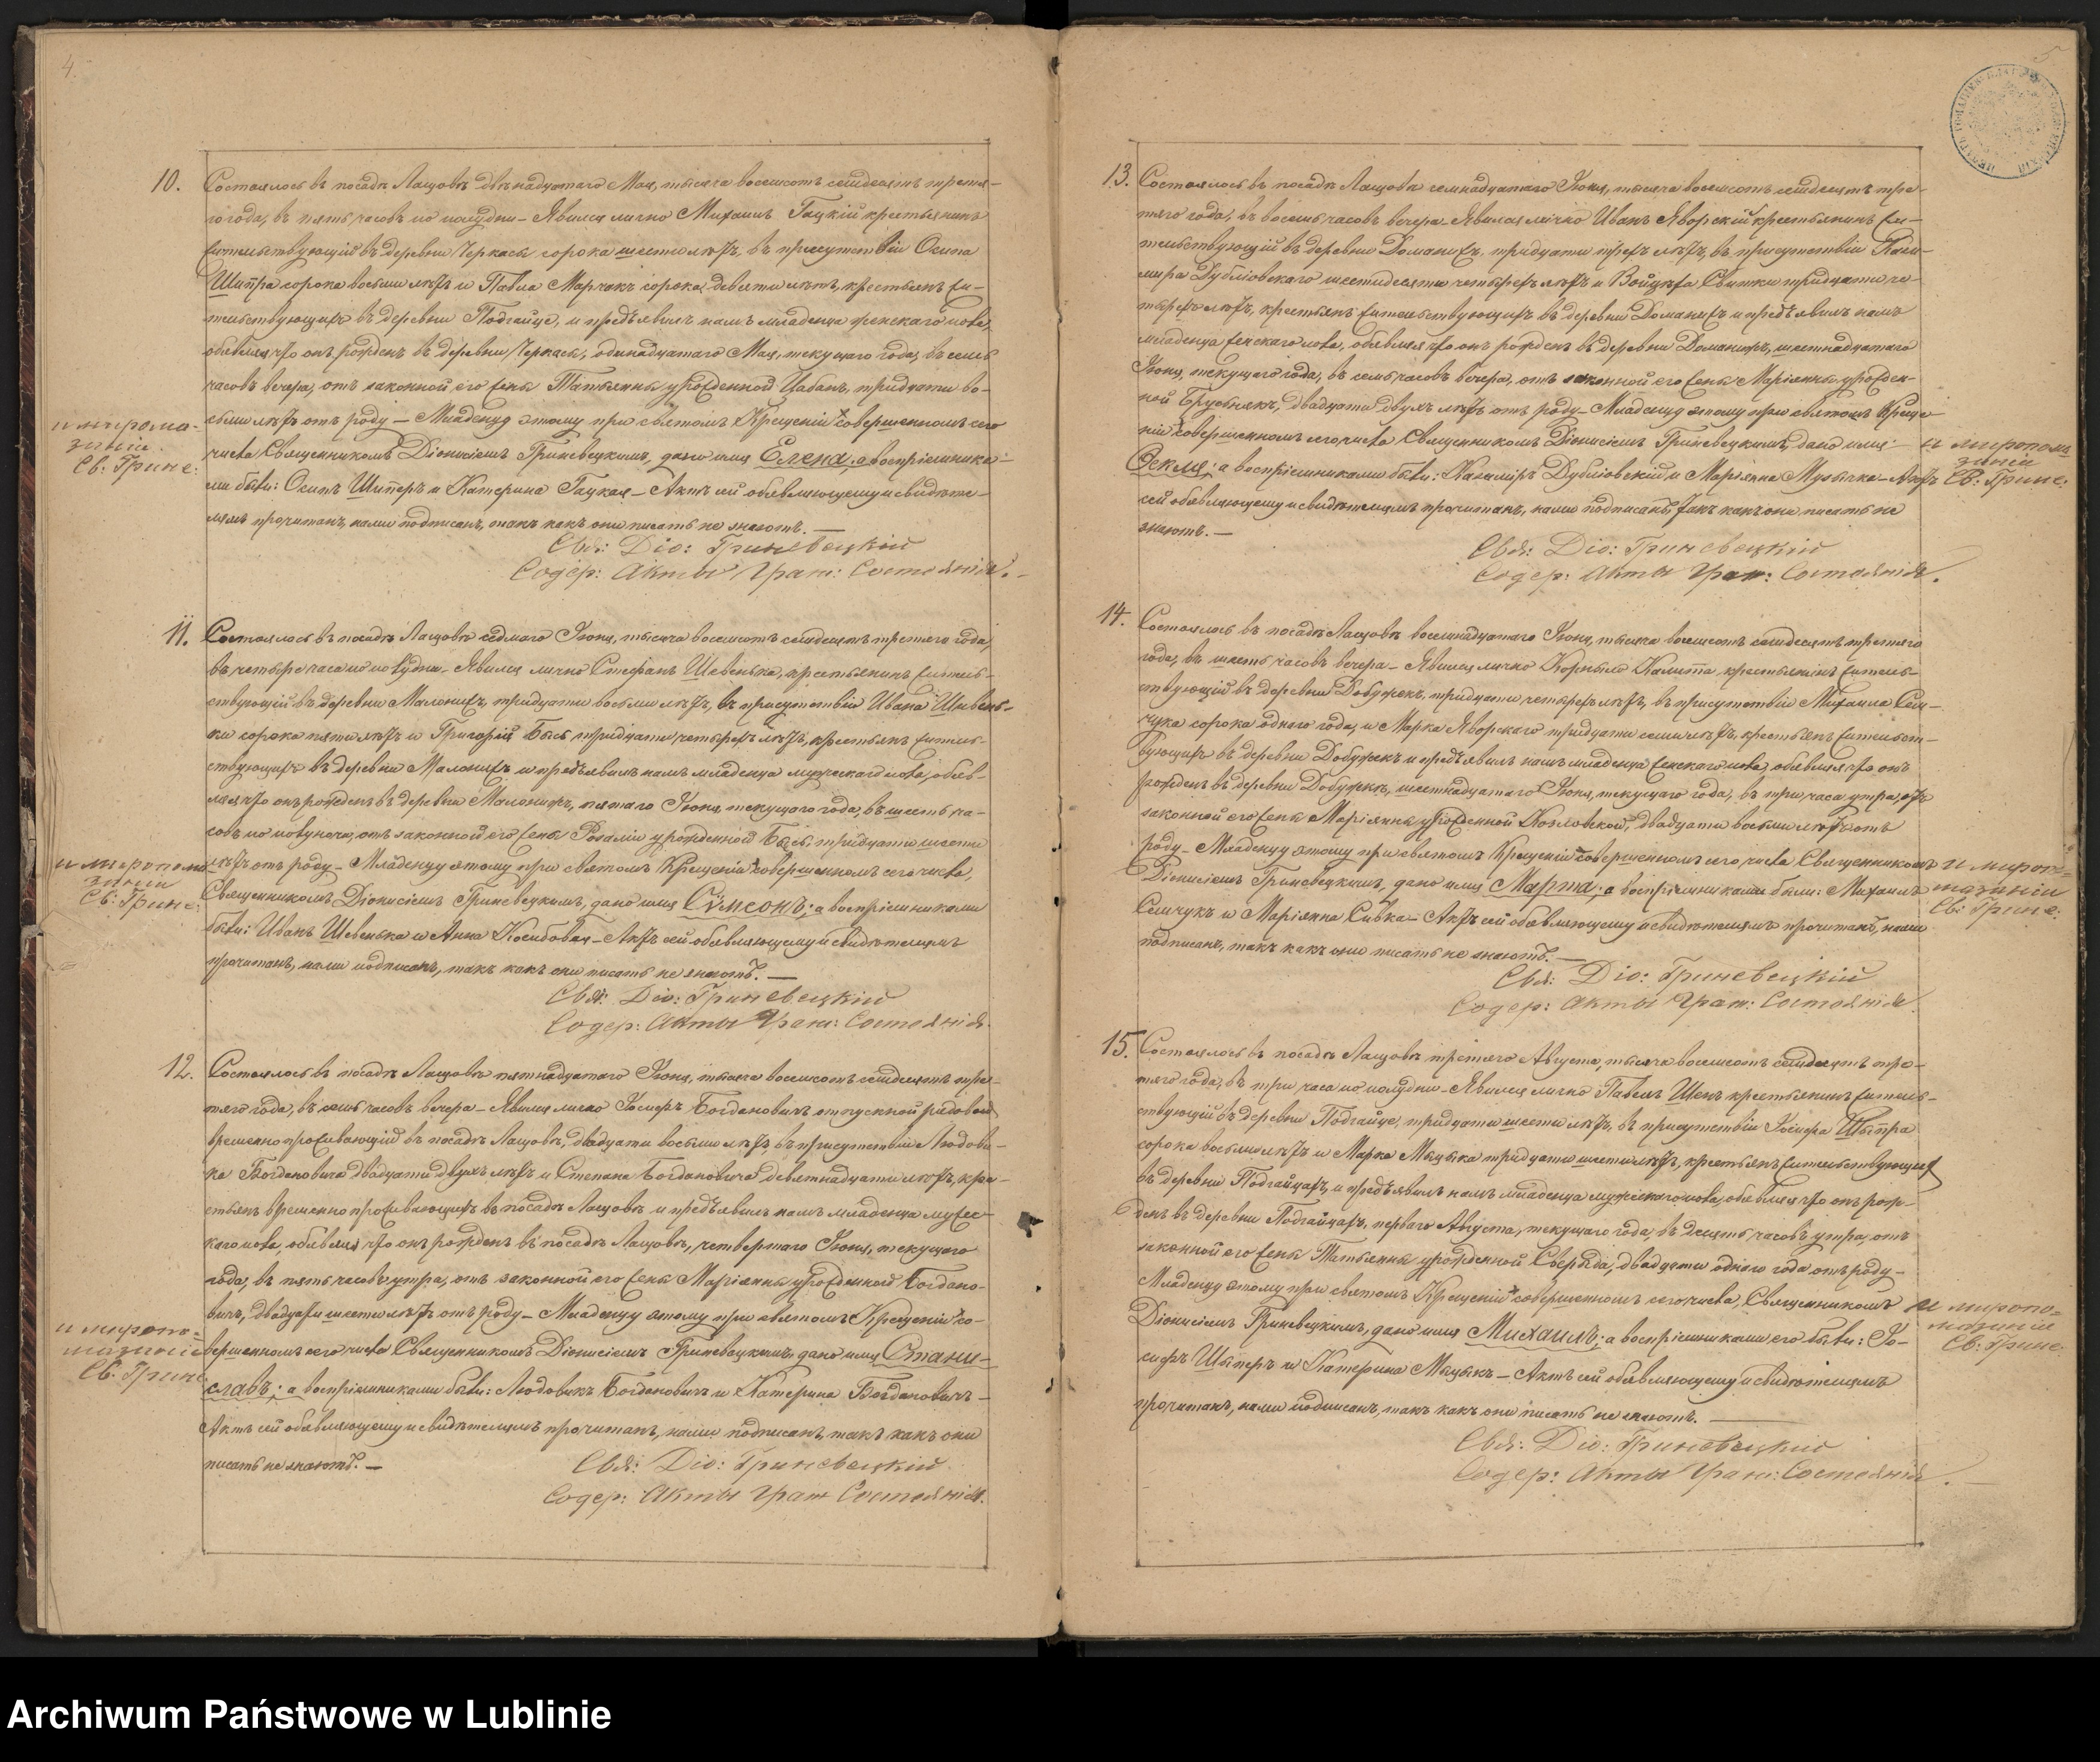 4.
10. Состоялось въ посадѣ Лащовѣ двѣнадцатаго Мая, тысяча восемьсотъ семдесятъ третя-
го года, въ пять часовъ по полудни – Явился лично Михаилъ Гацкій крестьянинъ
жительствующій въ деревни Черкасы сорока шести лѣтъ, въ присутствіи Осипа
Шипра сорока восьми лѣтъ и Павла Марчакъ сорока девяти лѣтъ, крестьянъ жи-
тельствующихъ въ деревни Подгайце, и предъявилъ намъ младенца женскаго пола,
объявляя что онъ рожденъ въ деревни Черкасы, одинадцатаго Мая, текущаго года, въ семь
часовъ вечера, отъ законной его жены Татьянны урожденной Цабанъ, тридцати во-
сьми лѣтъ отъ роду – Младенцу этому при святомъ Крещеніи совершенномъ сего
числа Священникомъ Діонисіемъ Гриневецкимъ, дано имя Елена; а воспріемника-
ми были: Осипъ Шиперъ и Катерина Гацкая – Актъ сей объявляющему и свидѣте-
лямъ прочитанъ, нами подписанъ, такъ какъ они писать не знаютъ. —
Свя: Діо: Гриневецкій
Содер: Акты Граж: Состоянія. –
и миропома-
заніи
Св: Грине:
11. Состоялось въ посадѣ Лащовѣ седмаго Іюня, тысяча восемьсотъ семдесятъ третяго года,
въ четыре часа по полудни – Явился лично Стефанъ Шевенька, крестьянинъ житель-
ствующій въ деревни Малонижъ, тридцати восьми лѣтъ, въ присутствіи Ивана Шивень-
ки сорока пяти лѣтъ и Григорій Бысь тридцати четырехъ лѣтъ, крестьянъ житель-
ствующихъ въ деревни Малонижъ и предъявилъ намъ младенца мужескаго пола, объяв-
ляя что онъ рожденъ въ деревни Малонижъ, пятаго Іюня, текущаго года, въ шесть ча-
совъ по полуночи, отъ законной его жены Розаліи урожденной Бысь, тридцати шести
лѣтъ отъ роду – Младенцу этому при святомъ Крещеніи совершенномъ сего числа,
Священникомъ Діонисіемъ Гриневецкимъ, дано имя Сѵмеонъ; а воспріемниками
были: Иванъ Шевенька и Анна – Актъ сей объявляющему и свидѣтелямъ
прочитанъ, нами подписанъ, такъ какъ они писать не знаютъ. —
Свя: Діо: Гриневецкій
Содер: Акты Граж: Состоянія.
и миропома-
заніи
Св: Грине:
12. Состоялось въ посадѣ Лащовѣ пятнадцатаго Іюня, тысяча восемьсотъ семдесятъ тре-
тяго года, въ семь часовъ вечера – Явился лично Іосифъ Богдановичъ отпускной рядовой
временно проживающій въ посадѣ Лащовѣ, двадцати восьми лѣтъ, въ присутствіи Людови-
ка Богдановича двадцати двухъ лѣтъ и Степана Богдановича девятнадцати лѣтъ, кре-
стьянъ временно проживающихъ въ посадѣ Лащовѣ и предъявилъ намъ младенца мужес-
каго пола, объявляя что онъ рожденъ въ посадѣ Лащовѣ, четвертаго Іюня, текущаго
года, въ пять часовъ утра, отъ законной его жены Маріянны урожденной Богдано-
вичъ, двадцати шести лѣтъ отъ роду – Младенцу этому при святомъ Крещеніи со-
вершенномъ сего числа Священникомъ Діонисіемъ Гриневецкимъ, дано имя Стани-
славъ; а воспріемниками были: Людовикъ Богдановичъ и Катерина Богдановичъ –
Актъ сей объявляющему и свидѣтелямъ прочитанъ, нами подписанъ, такъ какъ они
писать не знаютъ. —
Свя: Діо: Гриневецкій
Содер: Акты Граж Состоянія.
и миропо-
мазаніи
Св: Грине:
5
13. Состоялось въ посадѣ Лащовѣ семнадцатаго Іюня, тысяча восемьсотъ семдесятъ тре-
тяго года, въ восемь часовъ вечера – Явился лично Иванъ Яворскій крестьянинъ жи-
тельствующій въ деревни Доманижъ, тридцати трехъ лѣтъ, въ присутствіи Кази-
мира Дублёвскаго шестидесяти четырехъ лѣтъ и Войцѣха Свитки тридцати че-
тырехъ лѣтъ, крестьянъ жительствующихъ въ деревни Доманижъ и предъявилъ намъ
младенца женскаго пола, объявляя что онъ рожденъ въ деревни Доманижъ, шестнадцатаго
Іюня, текущаго года, въ семь часовъ вечера, отъ законной его жены Маріянны урожден-
ной двадцати двухъ лѣтъ отъ роду – Младенцу этому при святомъ Креще-
ніи совершенномъ сего числа Священникомъ Діонисіемъ Гриневецкимъ, дано имя:
Ѳекля; а воспріемниками были: Казиміръ Дублёвскій и Маріянна Музычка – Актъ
сей объявляющему и свидѣтелямъ прочитанъ, нами подписанъ, такъ какъ они писать не
знаютъ. —
Свя: Діо: Гриневецкій
Содер: Акты Граж: Состоянія.
и миропома
заніи
Св: Грине:
14. Состоялось въ посадѣ Лащовѣ восемнадцатаго Іюня, тысяча восемьсотъ семдесятъ третяго
года, въ шесть часовъ вечера – Явился лично Корнило Калитта, крестьянинъ житель-
ствующій въ деревни Добужекъ, тридцати четырехъ лѣтъ, въ присутствіи Михаила Сем-
чука сорока одного года, и Марка Яворскаго тридцати семи лѣтъ, крестьянъ жительст-
вующихъ въ деревни Добужекъ и предъявилъ намъ младенца женскаго пола, объявляя что онъ
рожденъ въ деревни Добужекъ, шестнадцатаго Іюня, текущаго года, въ три часа утра, отъ
законной его жены Маріянны урожденной Козловской, двадцати восьми лѣтъ отъ
роду – Младенцу этому при святомъ Крещеніи совершенномъ сего числа Священникомъ
Діонисіемъ Гриневецкимъ, дано имя Марта; а воспріемниками были: Михаилъ
Семчукъ и Маріянна Сивка – Актъ сей объявляющему и свидѣтелямъ прочитанъ, нами
подписанъ, такъ какъ они писать не знаютъ. —
Свя: Діо: Гриневецкій
Содер: Акты Граж: Состоянія.
и миропо-
мазаніи
Св: Грине:
15. Состоялось въ посадѣ Лащовѣ третяго Августа, тысяча восемьсотъ семдесятъ тре-
тяго года, въ три часа по полудни – Явился лично Павелъ Шенъ крестьянинъ житель-
ствующій въ деревни Подгайце, тридцати шести лѣтъ, въ присутствіи Іосифа Шыпра
сорока восьми лѣтъ и Марка Мыцыка тридцати шести лѣтъ, крестьянъ жительствующихъ
въ деревни Подгайцахъ, и предъявилъ намъ младенца мужескаго пола, объявляя что онъ рож-
денъ въ деревни Подгайцахъ, перваго Августа, текущаго года, въ десять часовъ утра, отъ
законной его жены Татьянны урожденной Сверида, двадцати одного года отъ роду –
Младенцу этому при святомъ Крещеніи совершенномъ сего числа, Священникомъ
Діонисіемъ Гриневецкимъ, дано имя Михаилъ; а воспріемниками его были: Іо-
сифъ Шыперъ и Катерина Мыцыкъ – Актъ сей объявляющему и свидѣтелямъ
прочитанъ, нами подписанъ, такъ какъ они писать не знаютъ. —
Свя: Діо: Гриневецкій
Содер: Акты Граж: Состоянія. –
и миропо-
мазаніи
Св: Грине:
Archiwum Państwowe w Lublinie